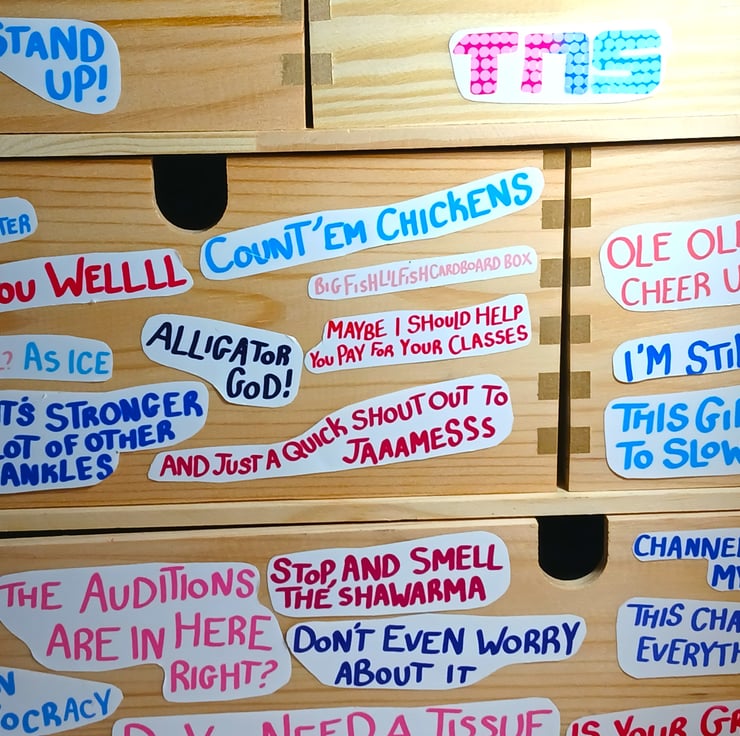 STAND
UP!
TNS
TER
COUNT'EM CHICKENS
OU WELLLL
BIG FISH LIL FISH CARDBOARD BOX
OLE OL
CHEER U
MAYBE I SHOULD HELP
YOU PAY FOR YOUR CLASSES
ALLIGATOR
GOD!
? AS ICE
I'M STI
IT'S STRONGER
LOT OF OTHER
ANKLES
AND JUST A QUICK SHOUT OUT TO
JAAAMESSS
THIS GI
TO SLOW
THE AUDITIONS
ARE IN HERE
RIGHT?
STOP AND SMELL
THE SHAWARMA
CHANNE
MY
DON'T EVEN WORRY
ABOUT IT
THIS CHA
EVERYTH
N
OCRACY
NEED A TISSUE
IS YOUR GR